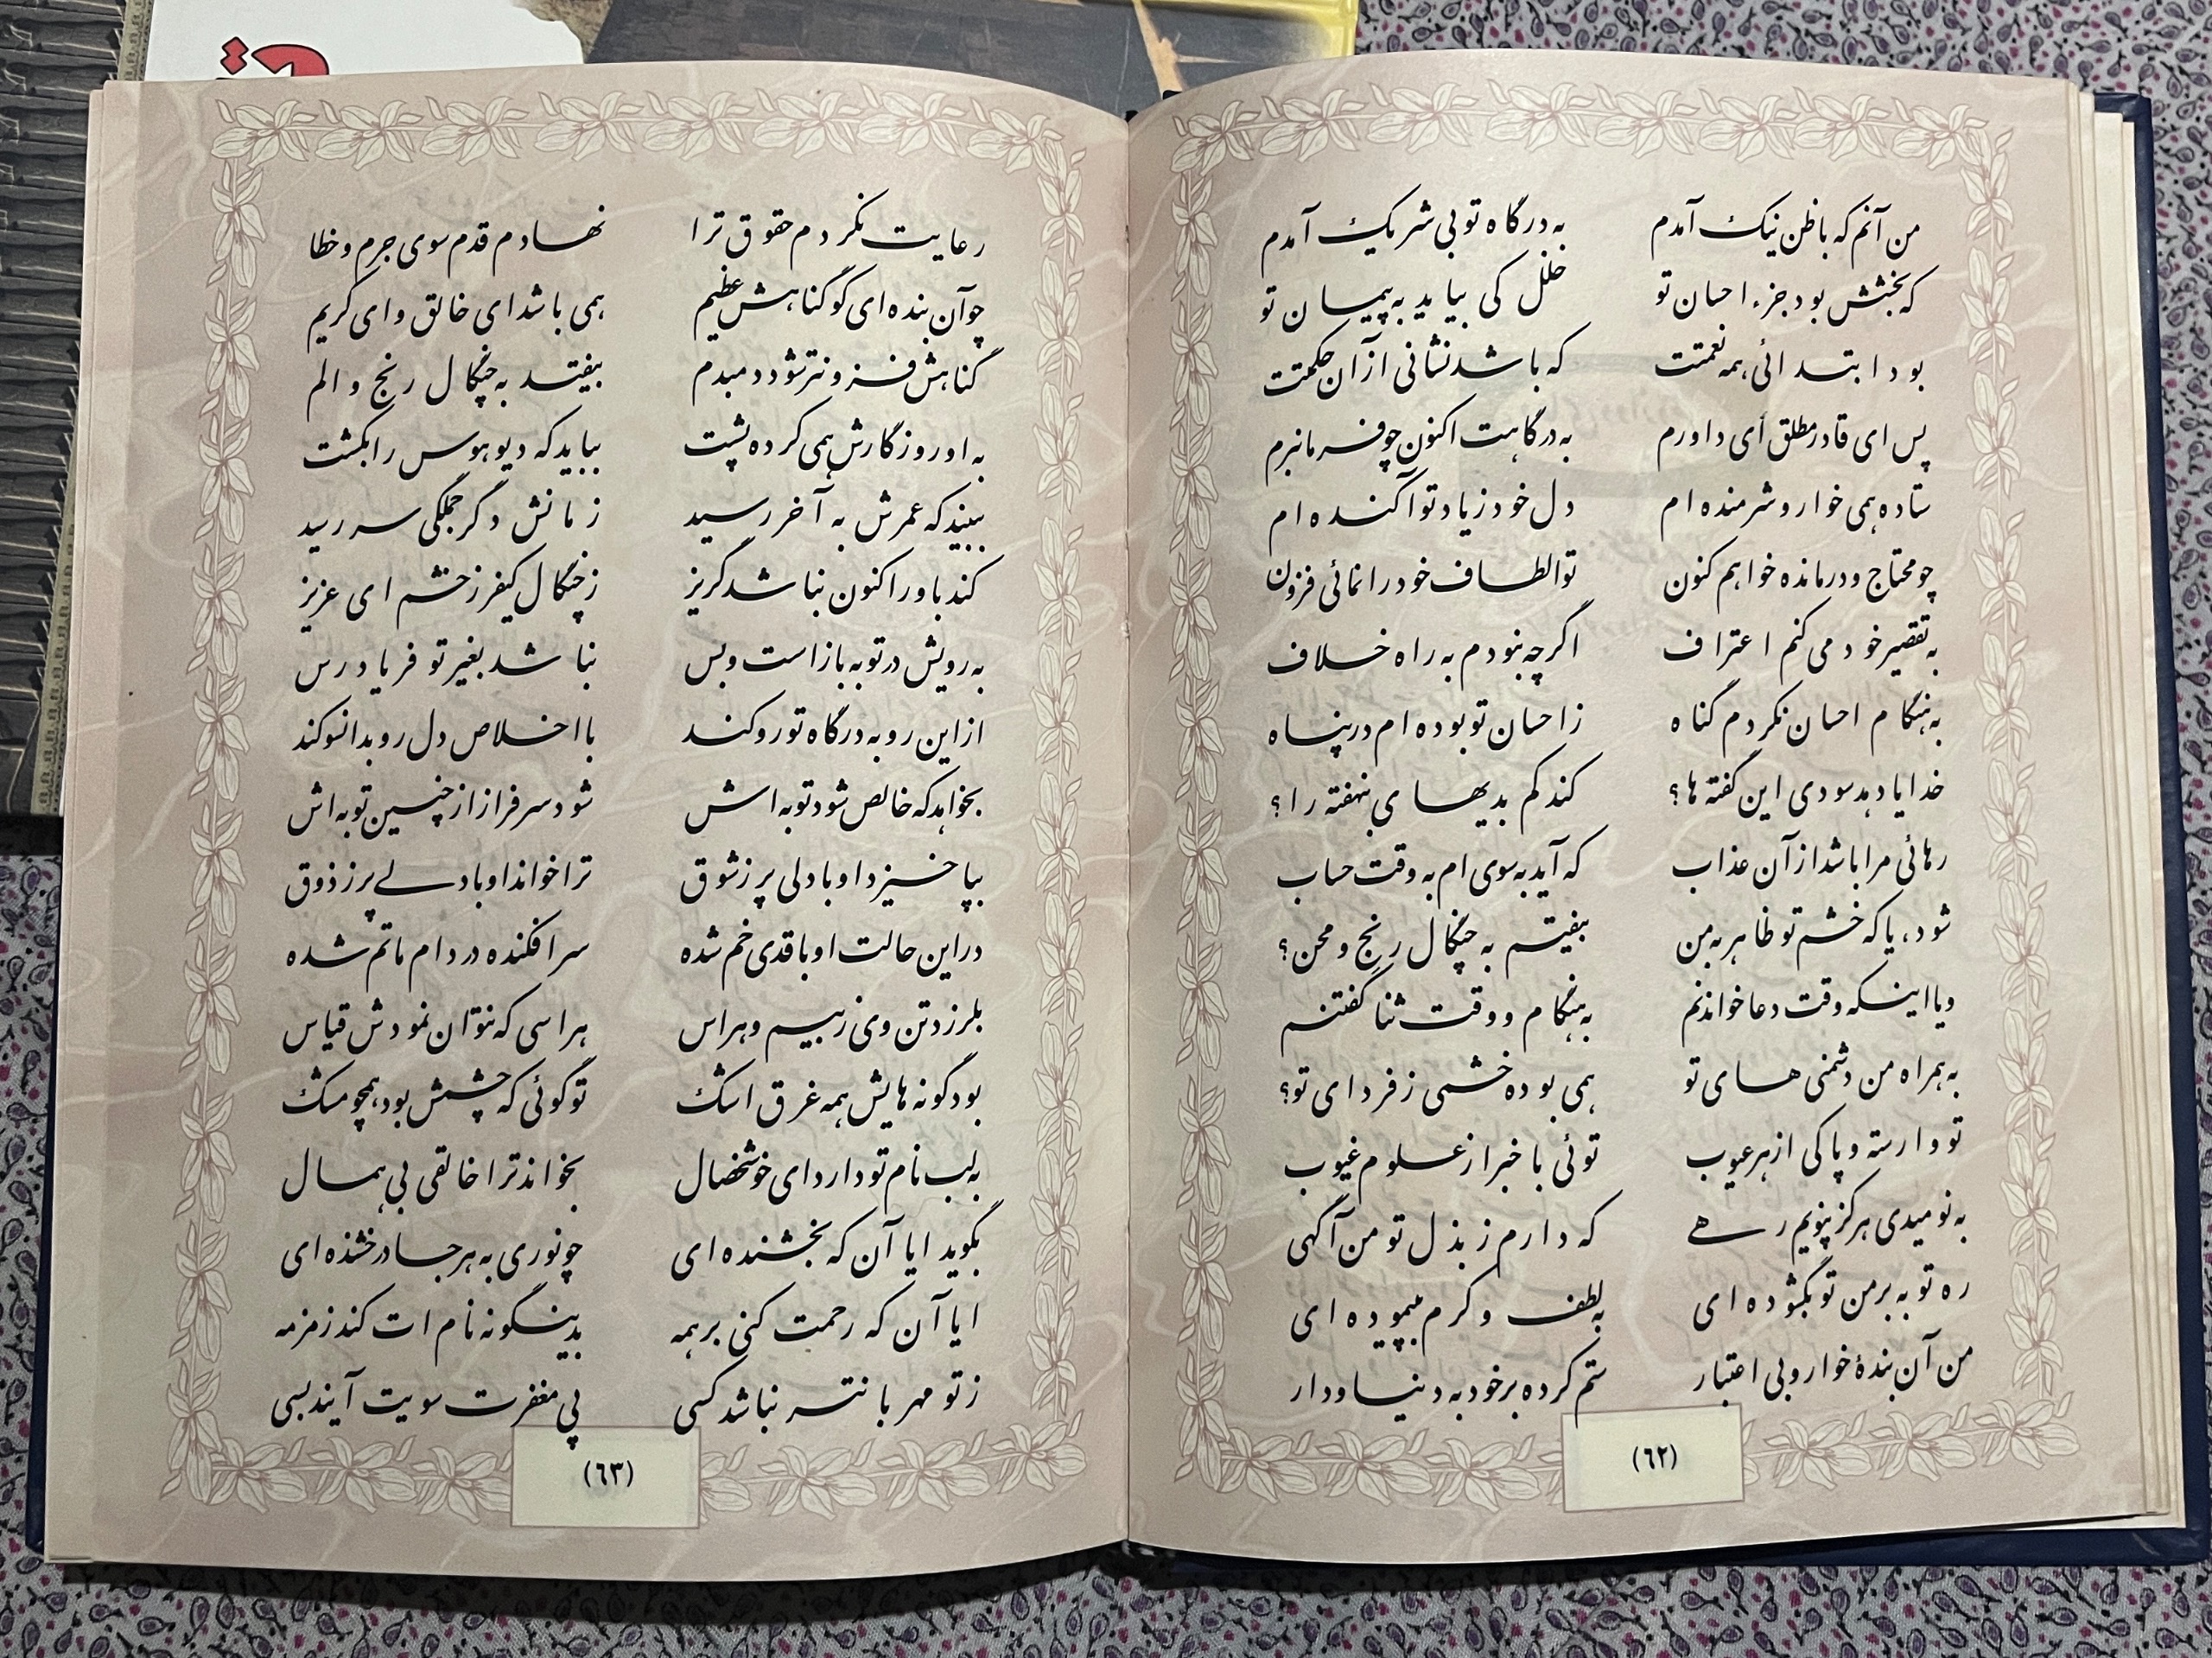 من آنم که با ظن نیک آمدم به درگاه تو بی شریک آمدم
که بخشش بود جزء احسان تو خلل کی بیاید به پیمان تو
بود ابتدائی همه نعمتت که باشد نشانی از آن حکمتت
پس ای قادر مطلق أی داورم به درگاهت اکنون چو فرمانبرم
ستاده همی خوار و شرمنده ام دل خود ز یاد تو آکنده ام
چو محتاج و درمانده خواهم کنون تو الطاف خود را نمائی فزون
به تقصیر خود می کنم اعتراف اگر چه نبودم به راه خلاف
به هنگام احسان نکردم گناه ز احسان تو بوده ام در پناه
خدایا دهد سودی این گفته ها؟ کند کم بدیهای نهفته را؟
رهائی مرا باشد از آن عذاب که آید به سوی ام به وقت حساب
شود، یا که خشم تو ظاهر به من بیفیتم به چنگال رنج و محن؟
و یا اینکه وقت دعا خواندنم به هنگام و وقت ثنا گفتنم
به همراه من دشمنی های تو همی بوده خشمی ز فردای تو؟
تو وارسته و پاکی از هر عیوب توئی با خبر از علوم غیوب
به نومیدی هرگز نپویم رهی که دارم ز بذل تو من آگهی
ره توبه بر من تو بگشوده ای به لطف و کرم بپیموده ای
من آن بندهٔ خوار و بی اعتبار ستم کرده بر خود به دنیا و دار
(٦٢)
رعایت نکردم حقوق ترا نهادم قدم سوی جرم و خطا
چو آن بنده ای کو گناهش عظیم همی باشد ای خالق و ای کریم
گناهش فزونتر شود دمبدم بیفتد به چنگال رنج و الم
به او روزگارش همی کرده پشت بباید که دیو هوس را بکشت
ببیند که عمرش به آخر رسید زمانش دگر جملگی سر رسید
کند باور اکنون نباشد گریز ز چنگال کیفر ز خشم ای عزیز
به رویش در توبه باز است و بس نباشد بغیر تو فریاد رس
از این رو به درگاه تو رو کند با اخلاص دل رو بدانسو کند
بخواهد که خالص شود توبه اش شود سرفراز از چنین توبه اش
بپا خیزد او با دلی پر ز شوق ترا خواند او با دلی پر ز ذوق
در این حالت او با قدی خم شده سر افکنده در دام ماتم شده
بلرزد تن وی ز بیم و هراس هراسی که نتوان نمودش قیاس
بود گونه هایش همه غرق اشک تو گوئی که چشمش بود، همچو مشک
به لب نام تو دارد ای خوشخصال بخواند ترا خالقی بی همال
بگوید ایا آن که بخشنده ای چو نوری به هر جا درخشنده ای
ایا آن که رحمت کنی بر همه بدینگونه نام ات کند زمزمه
ز تو مهربانتر نباشد کسی پی مغفرت سویت آیند بسی
(٦٣)